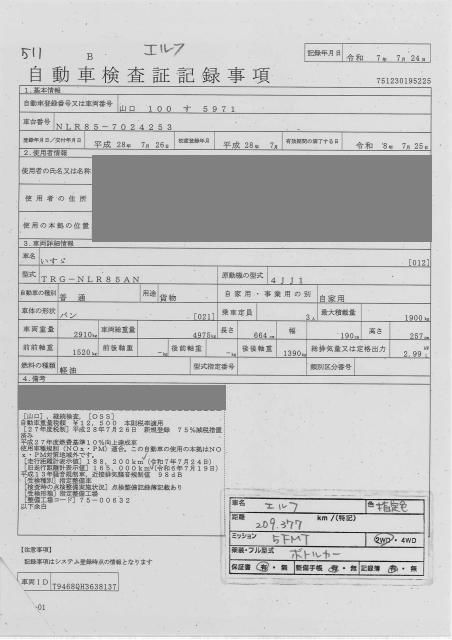 511
B
エルフ
記録年月日 令和 7年 7月 24日
自動車検査証記録事項
751230195225
1.基本情報
自動車登録番号又は車両番号 山口 100 す 5971
車台番号 NLR85-7024253
登録年月日/交付年月日 平成 28年 7月 26日 初度登録年月 平成 28年 7月 有効期間の満了する日 令和 8年 7月 25日
2.使用者情報
使用者の氏名又は名称
使用者の住所
使用の本拠の位置
3.車両詳細情報
車名 いすゞ [012]
型式 TRG-NLR85AN 原動機の型式 4JJ1
自動車の種別 普通 用途 貨物 自家用・事業用の別 自家用
車体の形状 バン [021] 乗車定員 3人 最大積載量 1900kg
車両重量 2910kg 車両総重量 4975kg 長さ 664cm 幅 190cm 高さ 257cm
前前軸重 1520kg 前後軸重 -kg 後前軸重 -kg 後後軸重 1390kg 総排気量又は定格出力 2.99 kW L
燃料の種類 軽油 型式指定番号 類別区分番号
4.備考
[山口],継続検査,[OSS]
自動車重量税額 ¥12,500 本則税率適用
[27年度税制]平成28年7月26日 新規登録 75%減税措置
済み
平成27年度燃費基準10%向上達成車
使用車種規制(NOx・PM)適合,この自動車の使用の本拠はNO
x・PM対策地域外です。
[走行距離計表示値]188,200km(令和7年7月24日)
[旧走行距離計表示値]165,000km(令和6年7月19日)
平成13年騒音規制車,近接排気騒音規制値 98dB
[受検種別]指定整備車
[検査時の点検整備実施状況]点検整備記録簿記載あり
[受検形態]指定整備工場
[整備工場コード]75-00632
以下余白
車名 エルフ 色 指定色
距離 209.377 km/(特記)
ミッション 5FMT 2WD・4WD
架装・フル型式 ボトルカー
保証書 有・無 整備手帳 有・無 記録簿 有・無
【注意事項】
記録事項はシステム登録時点の情報となります
車両ID T9468QH3638137
-01